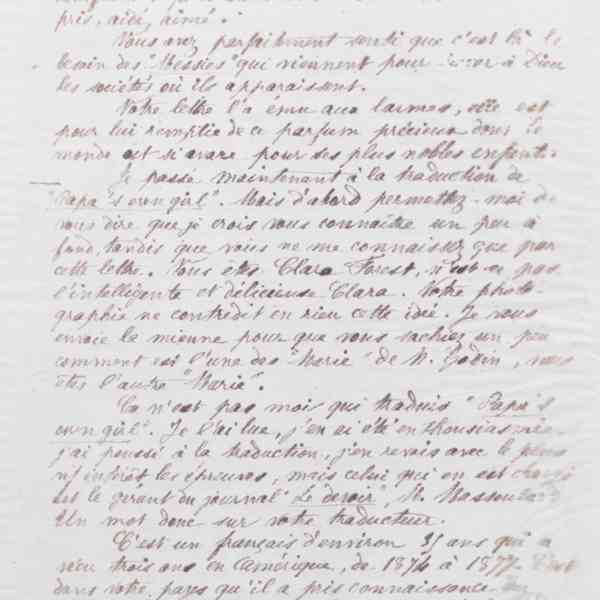 pris, aidé, aimé."
Vous avez parfaitement senti que c'est là le
besoin des "Messies" qui viennent pour à Dieu
les sociétés où ils apparaissent.
Votre lettre l'a ému aux larmes, elle est
pour lui remplie de ce parfum précieux dont le
monde est si avare pour ses plus nobles enfants.
Je passe maintenant à la traduction de
"Papa's own girl". Mais d'abord permettez-moi de
vous dire que je crois vous connaître un peu à
fond, tandis que vous ne me connaissez que par
cette lettre. Vous êtes Clara Forest, n'est-ce pas
l'intelligente et délicieuse Clara. Votre photo-
graphie ne contredit en rien cette idée. Je vous
envoie la mienne pour que vous sachiez un peu
comment est l'une des "Marie" de M. Godin, vous
êtes l'autre "Marie".
Ça n'est pas moi qui traduis "Papa's
own girl". Je l'ai lue, j'en ai été enthousiasmée
j'ai poussé à la traduction, j'en revois avec le plus
vif intérêt les épreuves, mais celui qui en est chargé
est le gérant du journal "Le devoir", M. Massoulard
Un mot donc sur votre traducteur.
C'est un français d'environ 35 ans qui a
vécu trois ans en Amérique, de 1874 à 1877. C'est
dans votre pays qu'il a pris connaissance